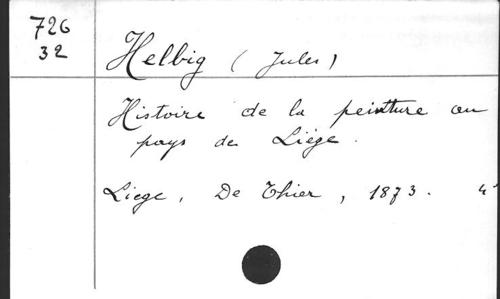 726
32
Helbig (Jules)
Histoire de la peinture au
pays de Liége.
Liege, De Thier, 1873. 4°